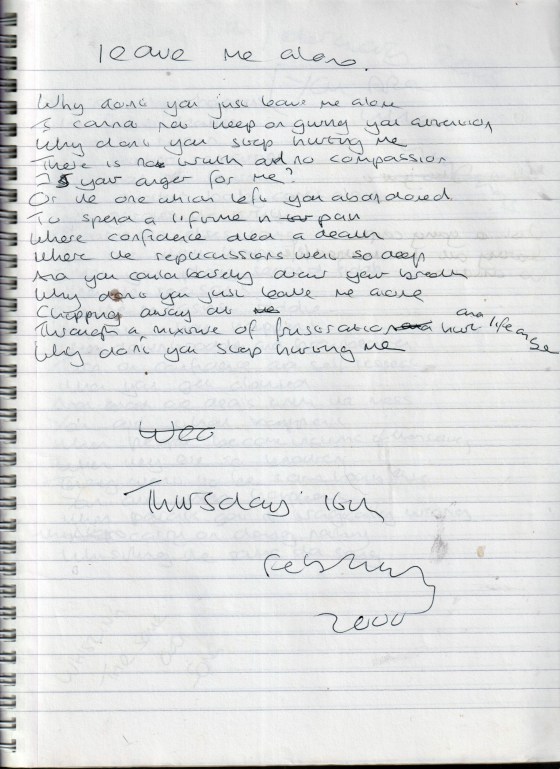 leave me alone.
Why dont you just leave me alone
I cannot keep on giving you attention
Why dont you stop hurting me
There is no truth and no compassion
Is your anger for me?
Or the one which left you abandoned
To spend a lifetime in pain
Where confidence died a death
Where the repercussions went so deep
And you could barely draw your breath
Why dont you just leave me alone
Chipping away at me
Through a mixture of frustration and hurt life
Why dont you stop hurting me
Wed
Thursday 16th
February
2000